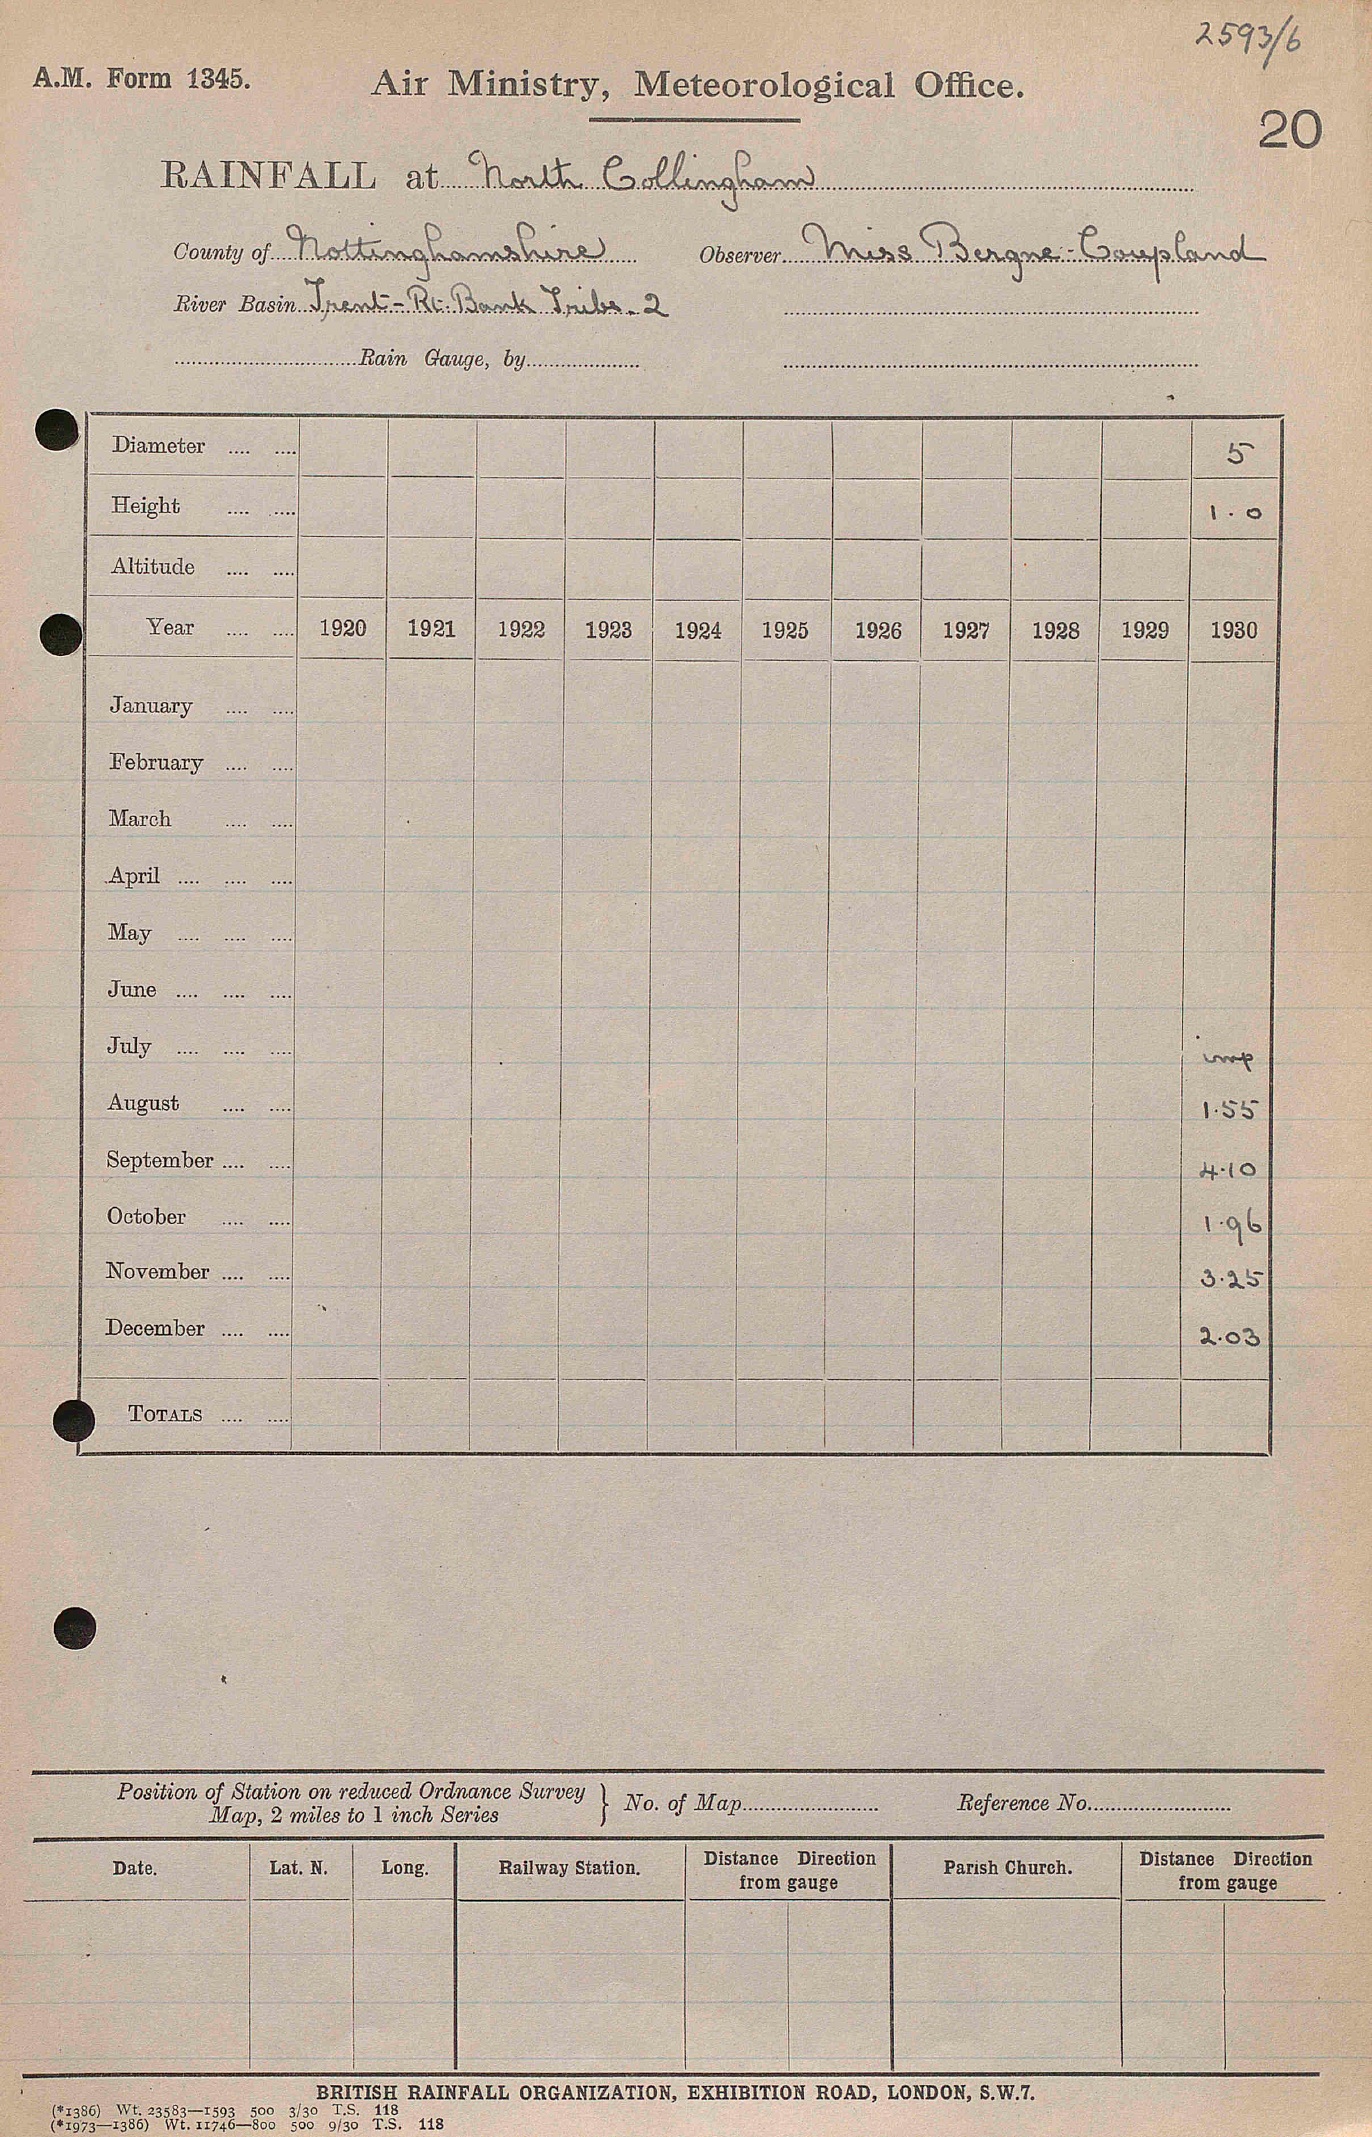 2593/6
A.M. Form 1345. Air Ministry, Meteorological Office.
20
RAINFALL at North Collingham
County of Nottinghamshire Observer Miss Bergne-Coupland
River Basin Trent - Rt. Bank Tribs. 2
Rain Gauge, by
Diameter .... .... 5
Height .... .... 1.0
Altitude .... ....
Year .... .... 1920 1921 1922 1923 1924 1925 1926 1927 1928 1929 1930
January .... ....
February .... ....
March .... ....
April .... .... ....
May .... .... ....
June .... .... ....
July .... .... .... imp
August .... .... 1.55
September .... .... 4.10
October .... .... 1.96
November .... .... 3.25
December .... .... 2.03
TOTALS .... ....
Position of Station on reduced Ordnance Survey
Map, 2 miles to 1 inch Series } No. of Map Reference No.
Date. Lat. N. Long. Railway Station. Distance Direction from gauge Parish Church. Distance Direction from gauge
BRITISH RAINFALL ORGANIZATION, EXHIBITION ROAD, LONDON, S.W.7.
(*1386) Wt. 23583—1593 500 3/30 T.S. 118
(*1973—1386) Wt. 11746—800 500 9/30 T.S. 118